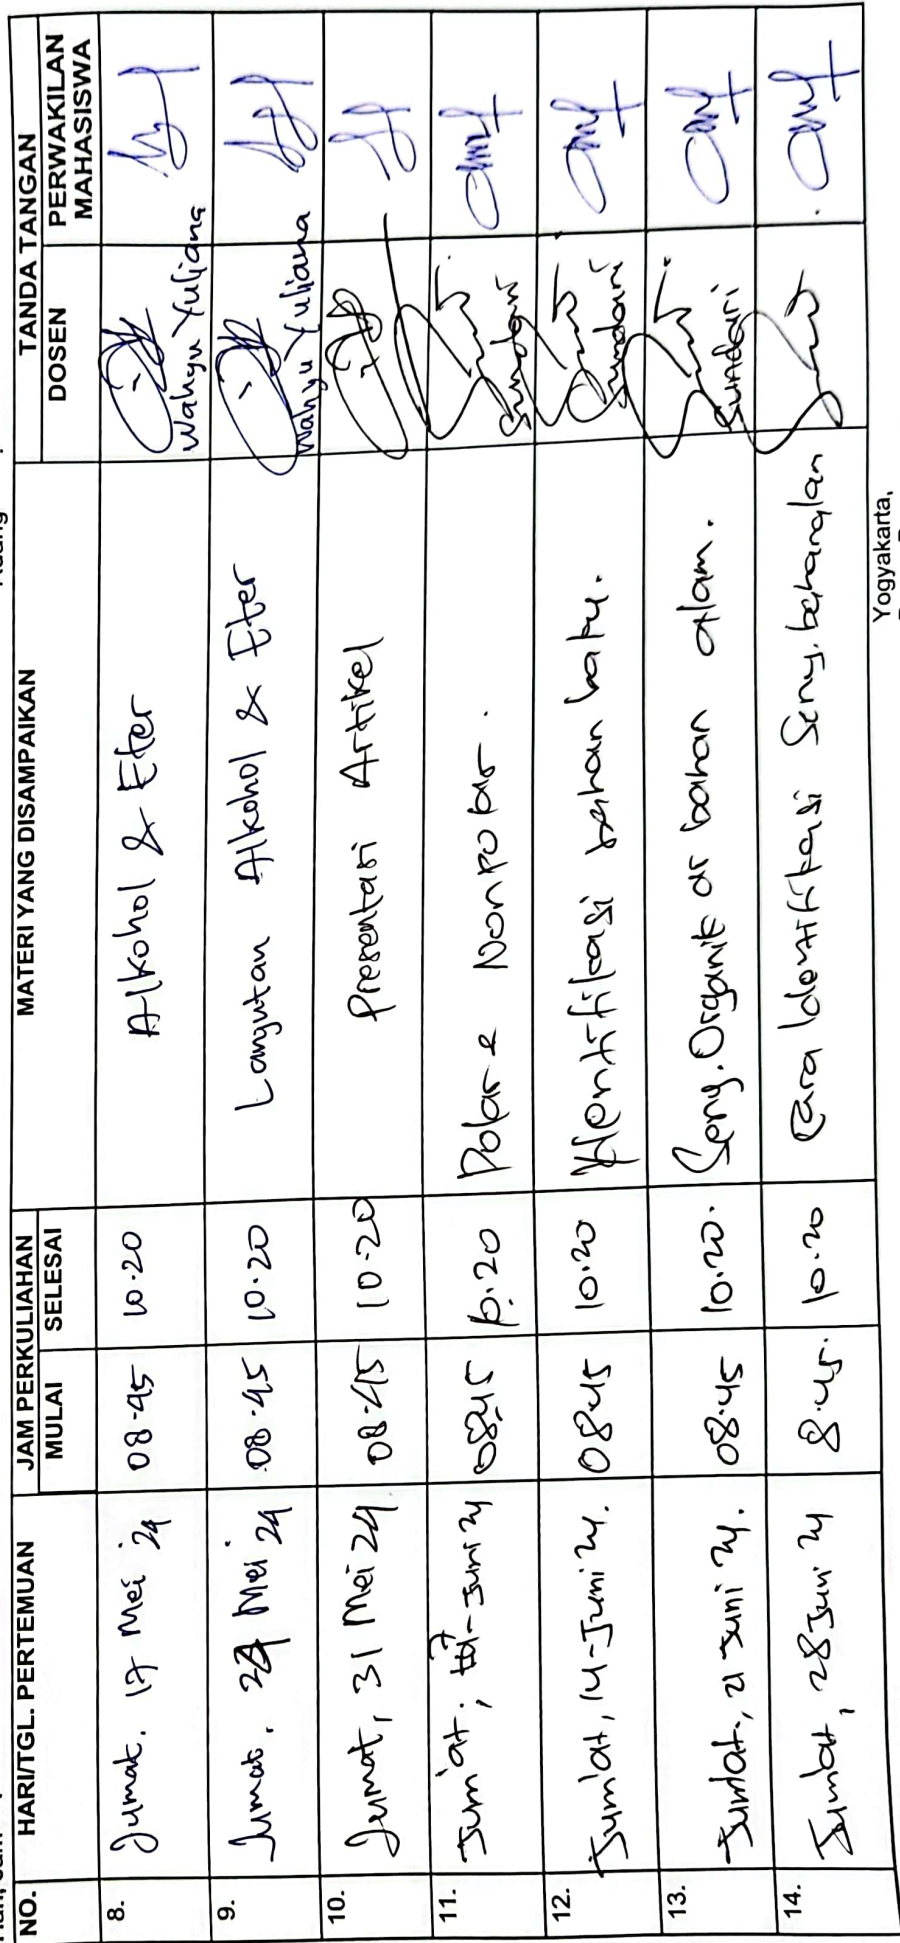 NO. HARI/TGL. PERTEMUAN JAM PERKULIAHAN MATERI YANG DISAMPAIKAN TANDA TANGAN
MULAI SELESAI DOSEN PERWAKILAN MAHASISWA
8. Jumat. 17 Mei 24 08.45 10.20 Alkohol & Eter Wahyu Yuliana
9. Jumat. 24 Mei 24 08.45 10.20 Lanjutan Alkohol & Eter Wahyu Yuliana
10. Jumat, 31 Mei 24 08.45 10.20 Presentasi Artikel
11. Jum'at, 7-Juni 24 08.45 10.20 Polar & Nonpolar. Sundari
12. Jum'at, 14-Juni 24. 08.45 10.20 Identifikasi bahan baku. Sundari
13. Jum'at, 21 Juni 24. 08.45 10.20. Seny. Organik dr bahan alam. Sundari
14. Jum'at, 28 Juni 24 8.45. 10.20 Cara Identifikasi Seny. bahan alam
Yogyakarta,